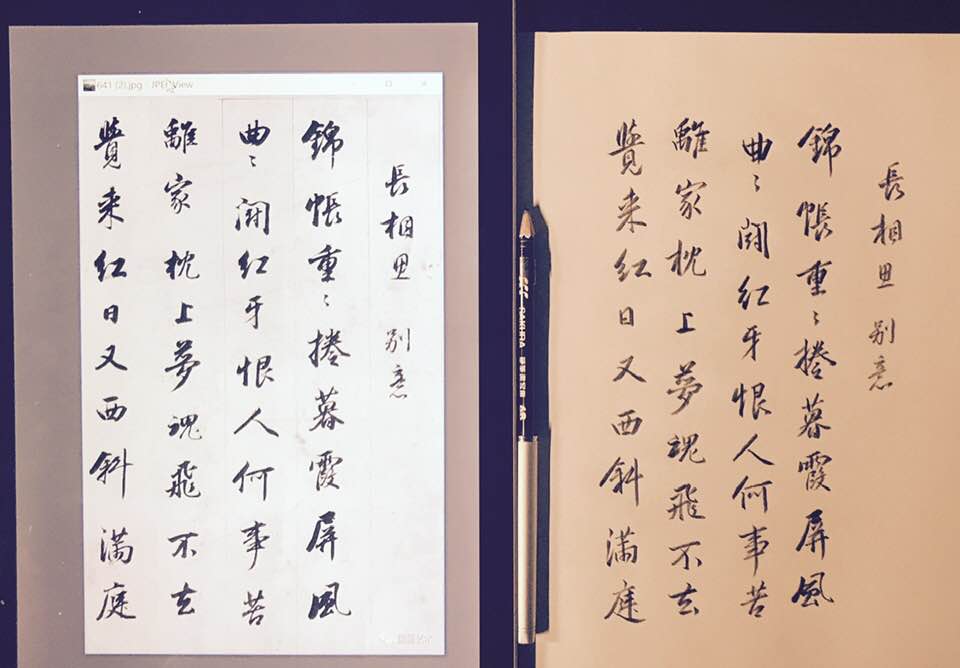 641 (2).jpg - JPEGView
長相思 別意
錦帳重〻捲暮霞屏風
曲〻鬪紅牙恨人何事苦
離家枕上夢魂飛不去
覺来紅日又西斜滿庭
長相思 別意
錦帳重〻捲暮霞屏風
曲〻鬪紅牙恨人何事苦
離家枕上夢魂飛不去
覺来紅日又西斜滿庭